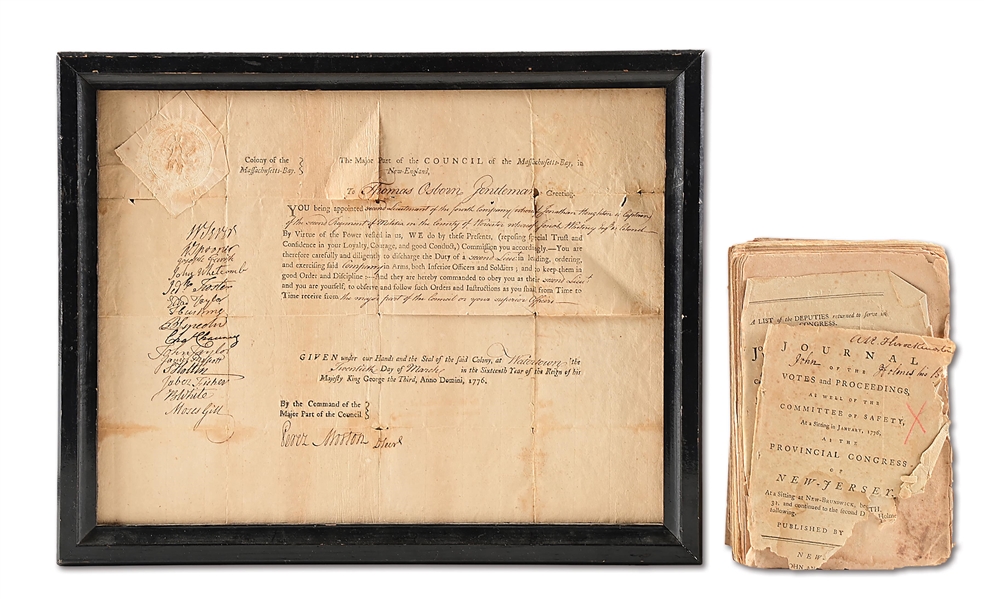 Colony of the
Massachusetts-Bay.
The Major Part of the COUNCIL of the Massachusetts-Bay, in
New-England,
To Thomas Osborn Gentleman Greeting.
YOU being appointed second Lieutenant of the fourth Company, whereof Jonathan Houghton is Captain
of the second Regiment of Militia in the County of Worcester whereof Josiah Whitney Esqr is Colonel
By Virtue of the Power vested in us, WE do by these Presents, (reposing special Trust and
Confidence in your Loyalty, Courage, and good Conduct,) Commission you accordingly.—You are
therefore carefully and diligently to discharge the Duty of a second Lieut in leading, ordering,
and exercising said Company in Arms, both Inferior Officers and Soldiers; and to keep them in
good Order and Discipline:—And they are hereby commanded to obey you as their second Lieut
and you are yourself, to observe and follow such Orders and Instructions as you shall from Time to
Time receive from the major part of the Council or your superior Officers
W Spooner
John Whetcomb
Jedh Foster
Taylor
T Cushing
B Lincoln
Chas Chauncy
John Taylor
S Holten
Jabez Fisher
B White
Moses Gill
GIVEN under our Hands and the Seal of the said Colony, at Watertown the
Twentieth Day of March in the Sixteenth Year of the Reign of his
Majesty King George the Third, Anno Domini, 1776.
By the Command of the
Major Part of the Council
Perez Morton
A LIST of the DEPUTIES returned to serve in
CONGRESS.
JOURNAL
OF THE
John Holmes his B
VOTES and PROCEEDINGS,
AS WELL OF THE
COMMITTEE OF SAFETY,
At a Sitting in JANUARY, 1776,
AS THE
PROVINCIAL CONGRESS
OF
NEW-JERSEY,
At a Sitting at NEW-BRUNSWICK,
31, and continued to the Second D
following.
PUBLISHED BY
NEW
JOHN